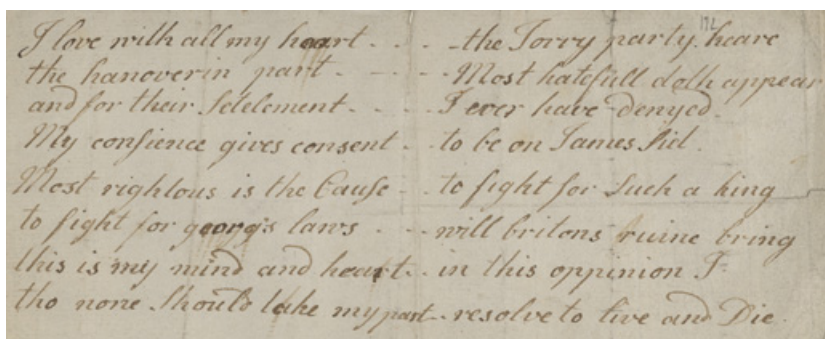 172
I love with all my heart - - - - the Torry party heare
the hanoverin part - - - - Most hatefull doth appear
and for their Setelement - - - - I ever have denyed.
My consience gives consent - - to be on James Sid.
Most rightous is the Cause - - to fight for Such a king
to fight for georg's laws - - - will britons ruine bring
this is my mind and heart - - in this oppinion I
tho none Should take my part - - resolve to live and Die.